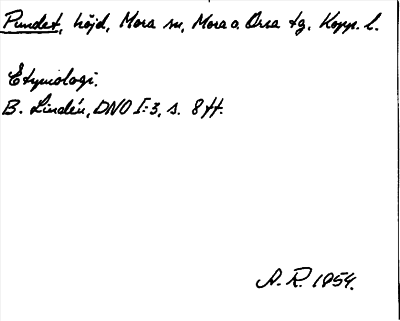 Pundet, höjd, Mora sn, Mora o. Orsa tg, Kopp. l.
Etymologi.
B. Lindén, DNO I:3, s. 8 ff.
A. R. 1954.